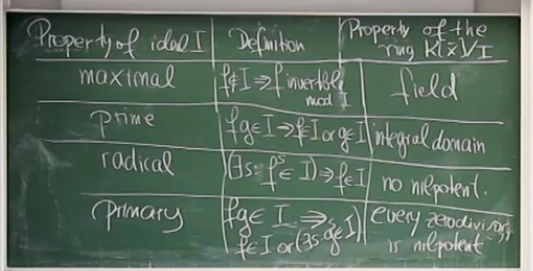 Property of ideal I | Definition | Property of the ring K[x]/I
maximal | f∉I ⇒ f invertible mod I | field
prime | fg∈I ⇒ f∈I or g∈I | integral domain
radical | (∃s: f^s ∈ I) ⇒ f∈I | no nilpotent.
primary | fg∈I ⇒ f∈I or (∃s g^s∈I) | every zerodivisor is nilpotent